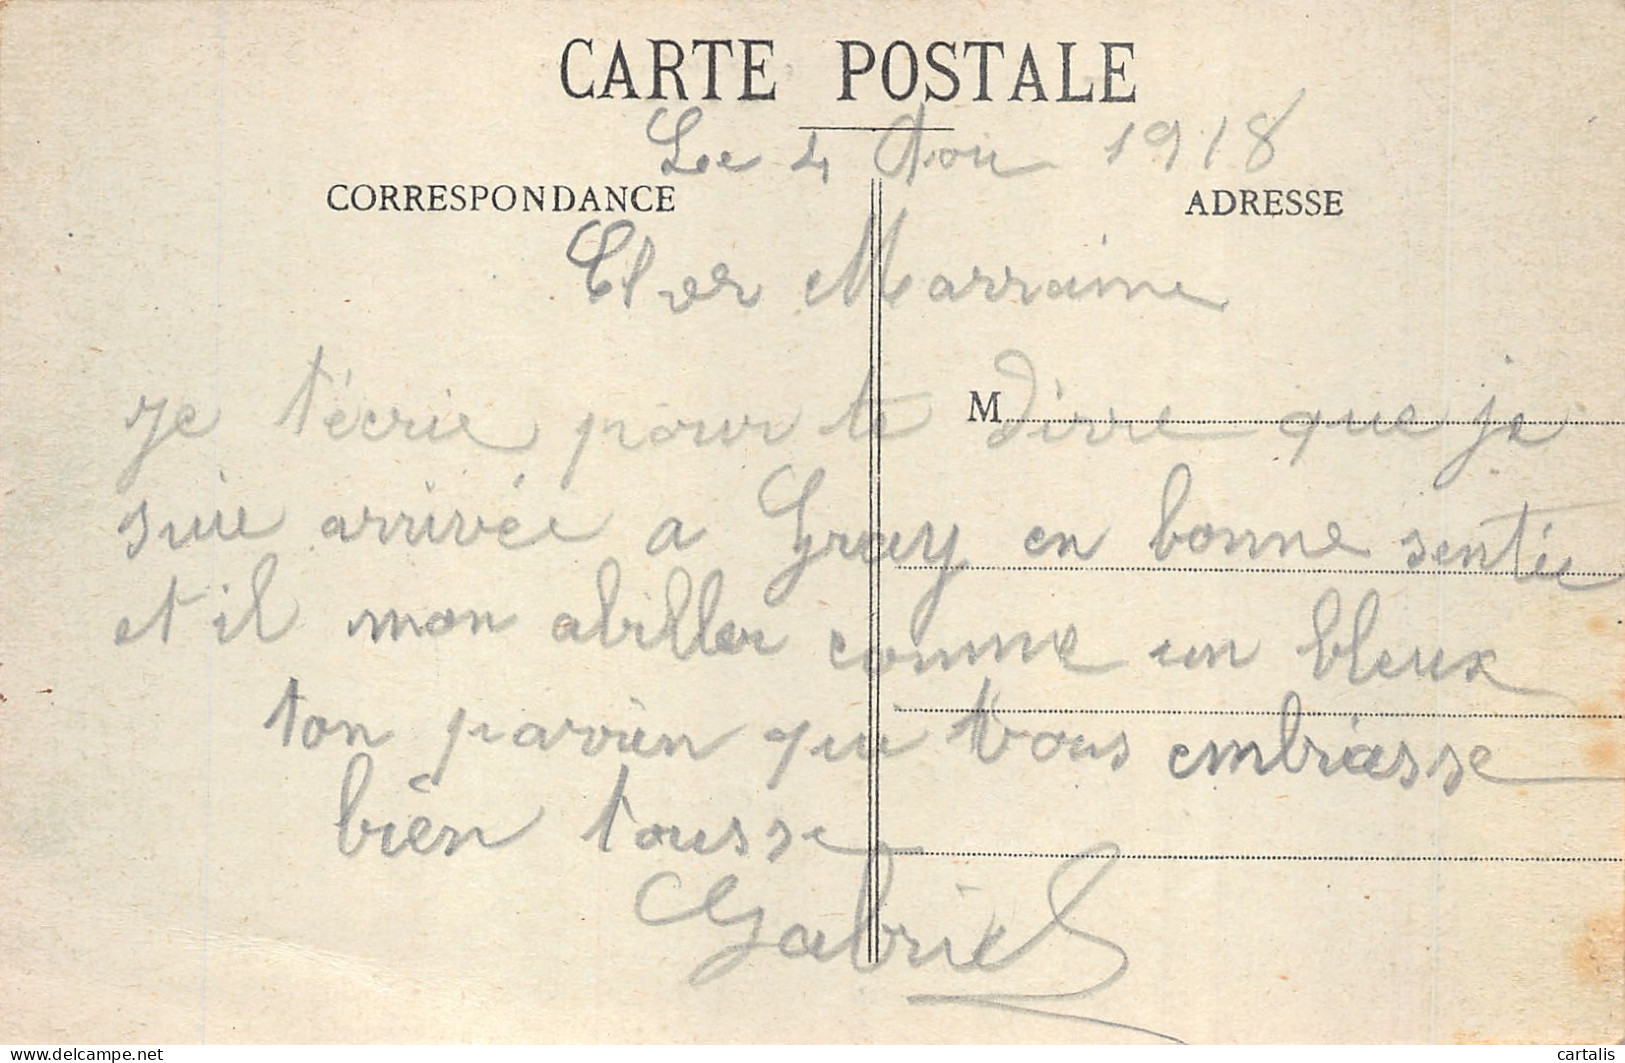 CARTE POSTALE
Le 4 Aou 1918
CORRESPONDANCE
ADRESSE
Cher Marraine
M
je t'écrie pour te dirre que je
suie arrivée a Gray en bonne sentée
et il mon abiller comme un bleux
ton parvien qui vous embrasse
bien tousse
Gabriel
www.delcampe.net
cartalis